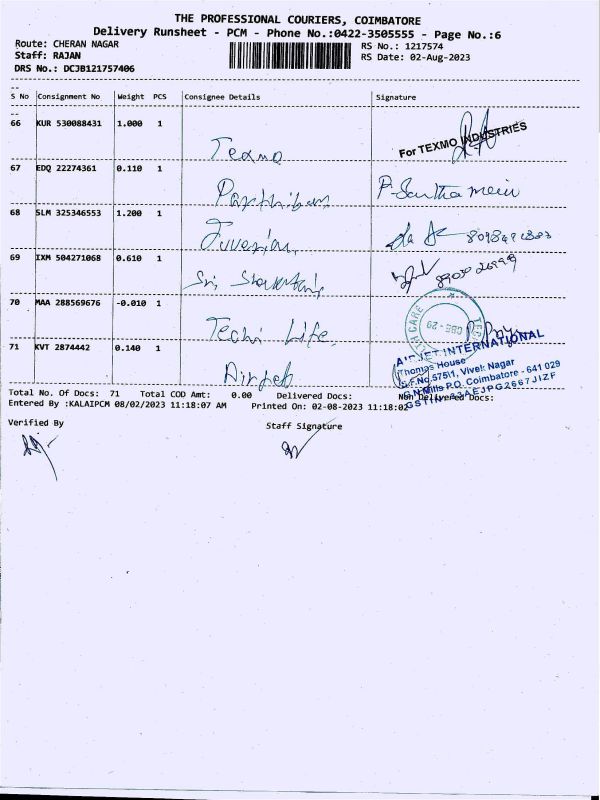 THE PROFESSIONAL COURIERS, COIMBATORE
Delivery Runsheet - PCM - Phone No.:0422-3505555 - Page No.:6
Route: CHERAN NAGAR RS No.: 1217574
Staff: RAJAN RS Date: 02-Aug-2023
DRS No.: DCJB121757406
S No Consignment No Weight PCS Consignee Details Signature
66 KUR 530088431 1.000 1
Texmo For TEXMO INDUSTRIES
67 EDQ 22274361 0.110 1
Parthiban
68 SLM 325346553 1.200 1
69 IXM 504271068 0.610 1
Sri
70 MAA 288569676 -0.010 1
Techi Life
71 KVT 2874442 0.140 1
AIRJET INTERNATIONAL
Thomas House
S.F.No.575/1, Vivek Nagar
G.N Mills P.O. Coimbatore - 641 029
Airjet
Total No. Of Docs: 71 Total COD Amt: 0.00 Delivered Docs: Non Delivered Docs:
Entered By :KALAIPCM 08/02/2023 11:18:07 AM Printed On: 02-08-2023 11:18:02
Verified By Staff Signature